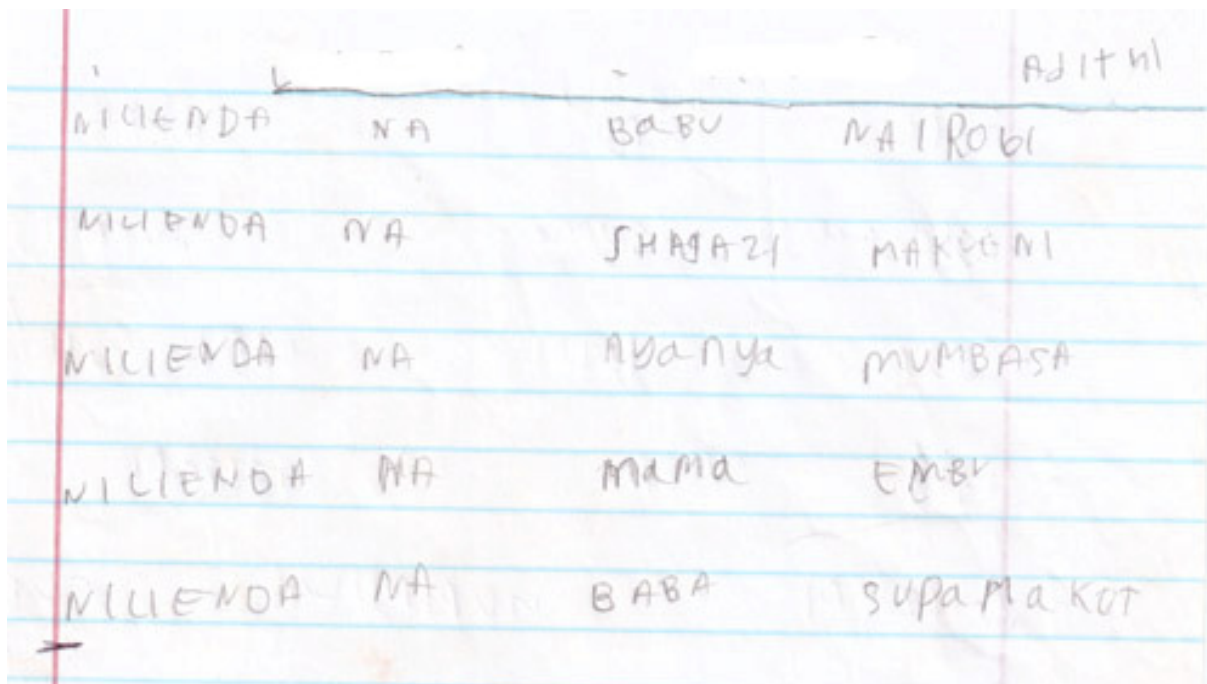 Adithi
NILIENDA NA BaBU NAIRObi
NILIENDA NA SHAGAZI MAKUENI
NILIENDA NA nyanya MUMBASA
NILIENDA NA MaMa EMBU
NILIENDA NA BABA SUPaMaKOT